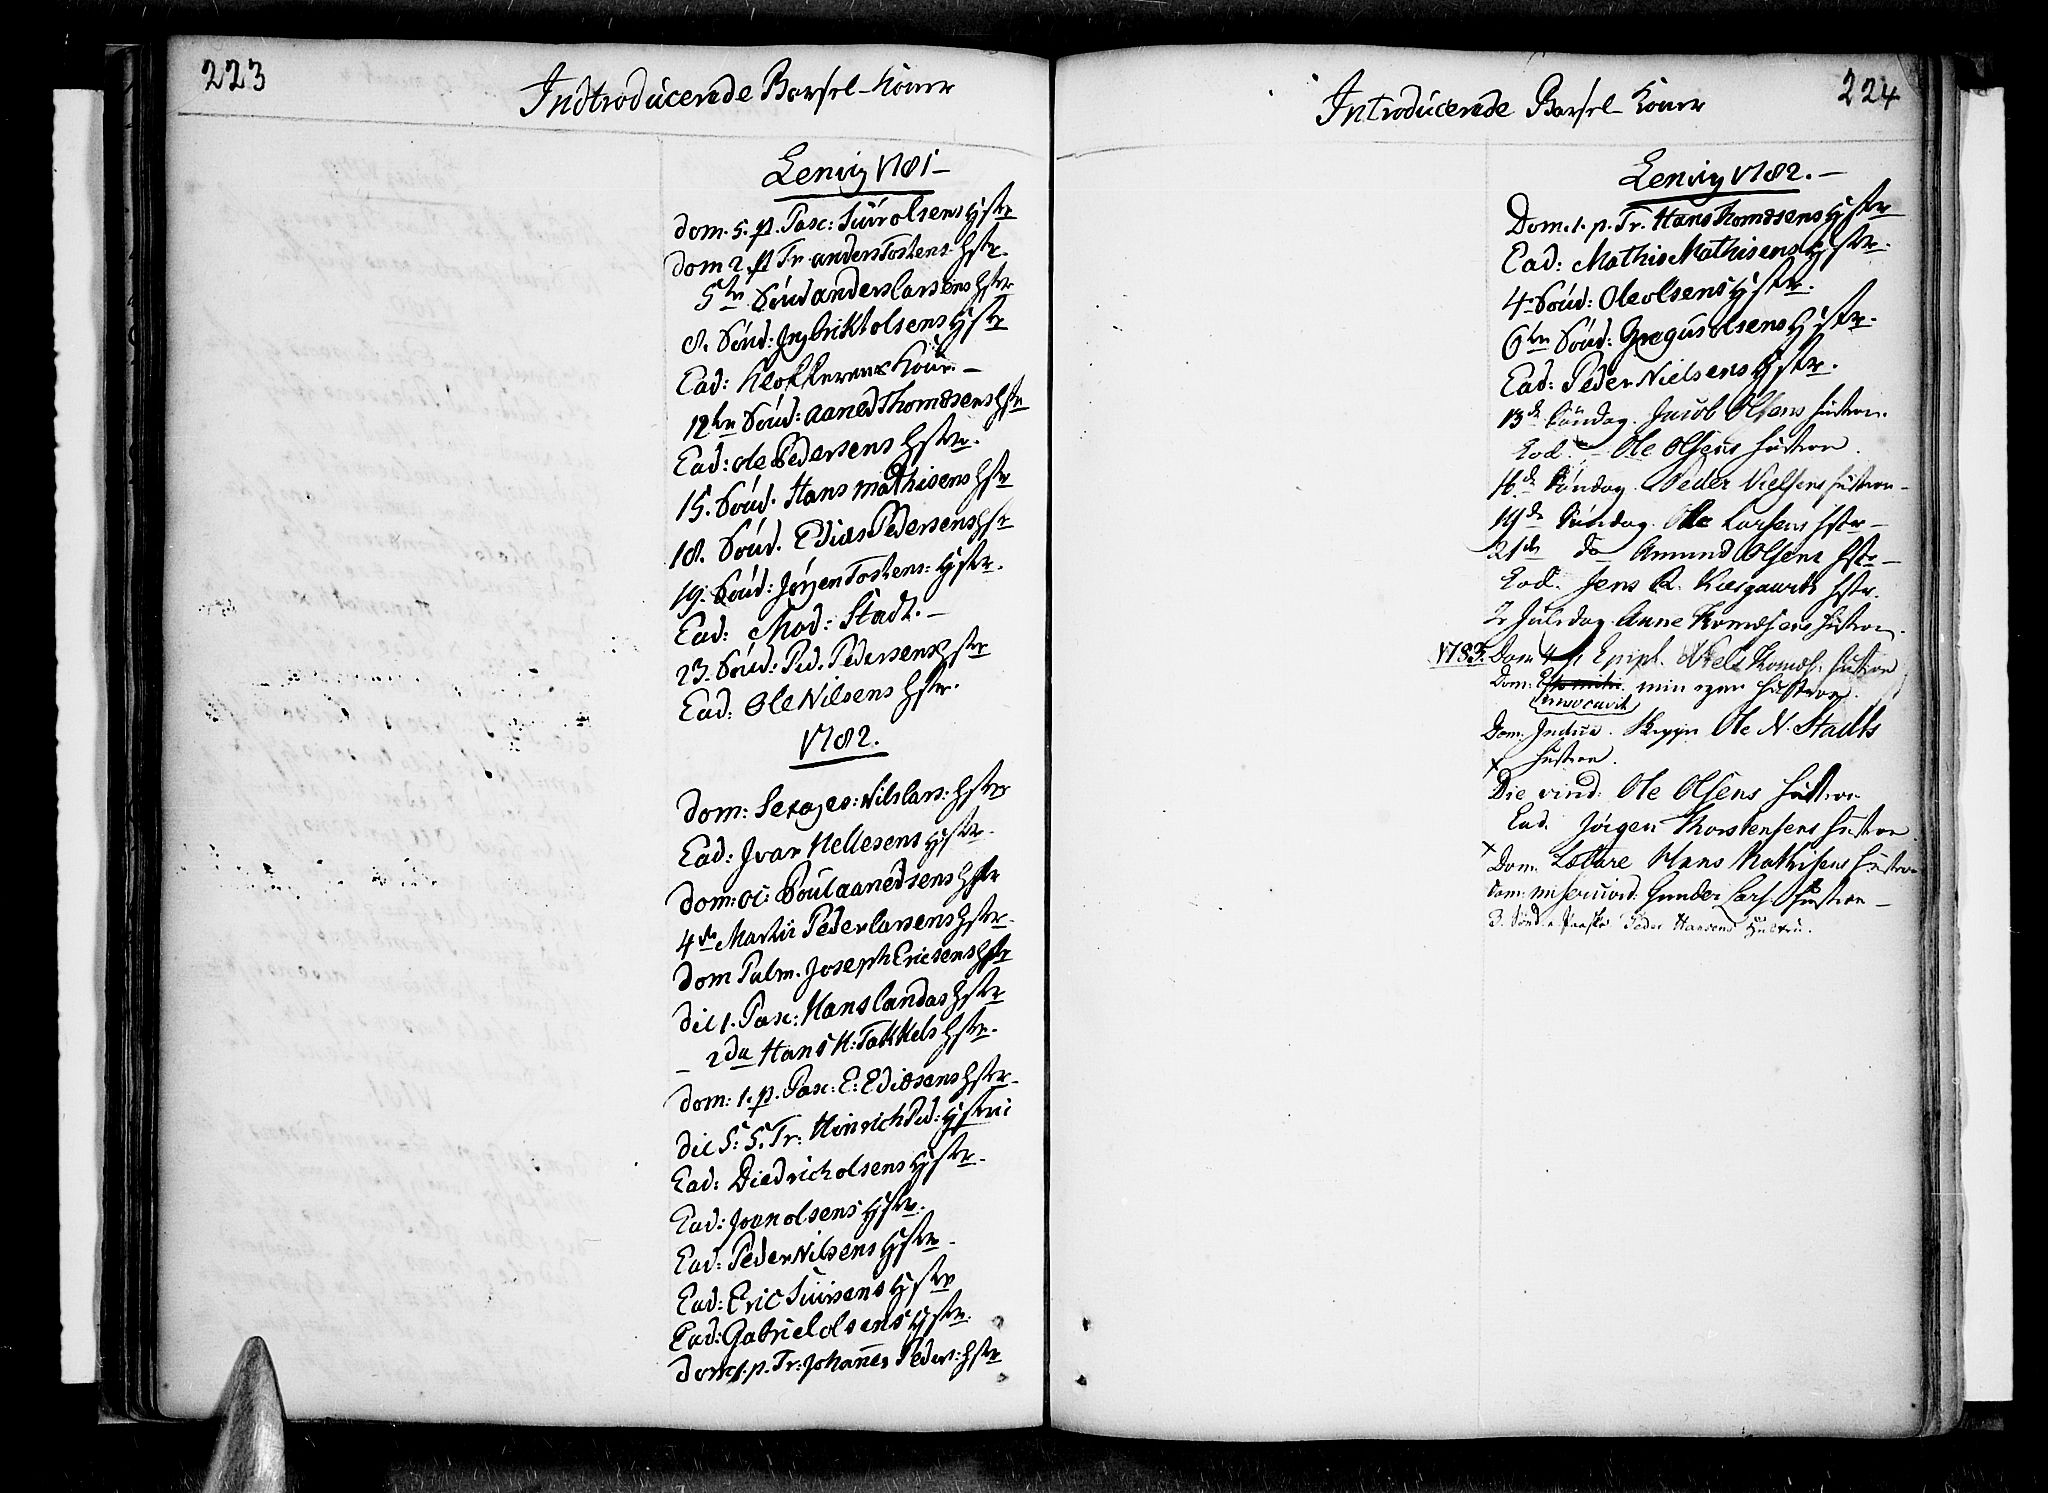 223
Indtroducerede Barsel-Koner
Lenvig 1781-
Dom. 5. p. Pasc: Siúr olsens Hstr
Dom 2. p Tr anders Tostens: Hstr.
5te Sönd anders larsens Hstr
8. Sönd: Ing brikt olsens Hstr
Ead: Klokkerens Kone. -
12te Sönd: aaned Thomæsens Hstr
Ead: ole Pedersens Hstr.
15. Sönd. Hans mathisens Hstr
18. Sönd. Edias Pedersens Hstr
19. Sönd: Jörgen Tostens: Hstr.
Ead: Mad: Stadt. -
23. Sönd: Ped. Pedersens Hstr
Ead: Ole Nilsens Hstr.
1782.
Dom: Sexages: Nils lars: Hstr
Ead: Ivar Hellesens Hstr.
Dom: oc: Poul aanedsens Hstr
4de Martii Peder larsens Hstr.
Dom Palm. Joseph Ericsens Hstr
Die 1. Pasc: Hans landas Hstr
- 2da Hans H: Takkels Hstr.
Dom: 1. p. Pasc: E: Ediæsens Hstr.
Die S: S. Tr: Hinrich Ped: Hstr
Ead: Diedrich olsens Hstr.
Ead: Joan olsens Hstr.
Ead: Peder Nilsens Hstr.
Ead: Eric Siúrsens Hstr
Ead: Gabriel olsens Hstr.
Dom: 1. p. Tr: Johannes Peders: Hstr
224
Introducerede Barsel Koner
Lenvig 1782. -
Dom. 1. p. Tr. Hans Thomæsens Hstr
Ead: Mathis Mathisens Hstr.
4 Sönd: Ole olsens Hstr.
6te Sönd: Gregus olsens Hstr.
Ead: Peder Nielsens Hstr.
13de Söndag. Jacob Olsens Hustroe.
Eod. - Ole Olsens Hustroe.
16de Söndag. Peder Nielsens Hustroe -
19de Söndag. Ole Larsens Hstr -
21de do Amund Olsens Hstr -
Eod. Jens R. Kiergaards Hstr.
2 Juledag Anne Thomæsens Hustroe.
1783. Dom 4 p Epiph. Niels Thomæs. Hustroe
Dom: Estomihi min egen Hustroe.
invocavit
Dom. Judica. Skipp Ole N. Stadts
x Hustroe.
Die virid: Ole Olsens Hustroe
Ead. Jörgen Thorstensens Hustroe
x Dom. Lætare Hans Mathisens Hustroe
Dom: misericord: Gunder Lars. Hustroe -
3. Sönd. e. Paaske Peder Hansens Hustru.